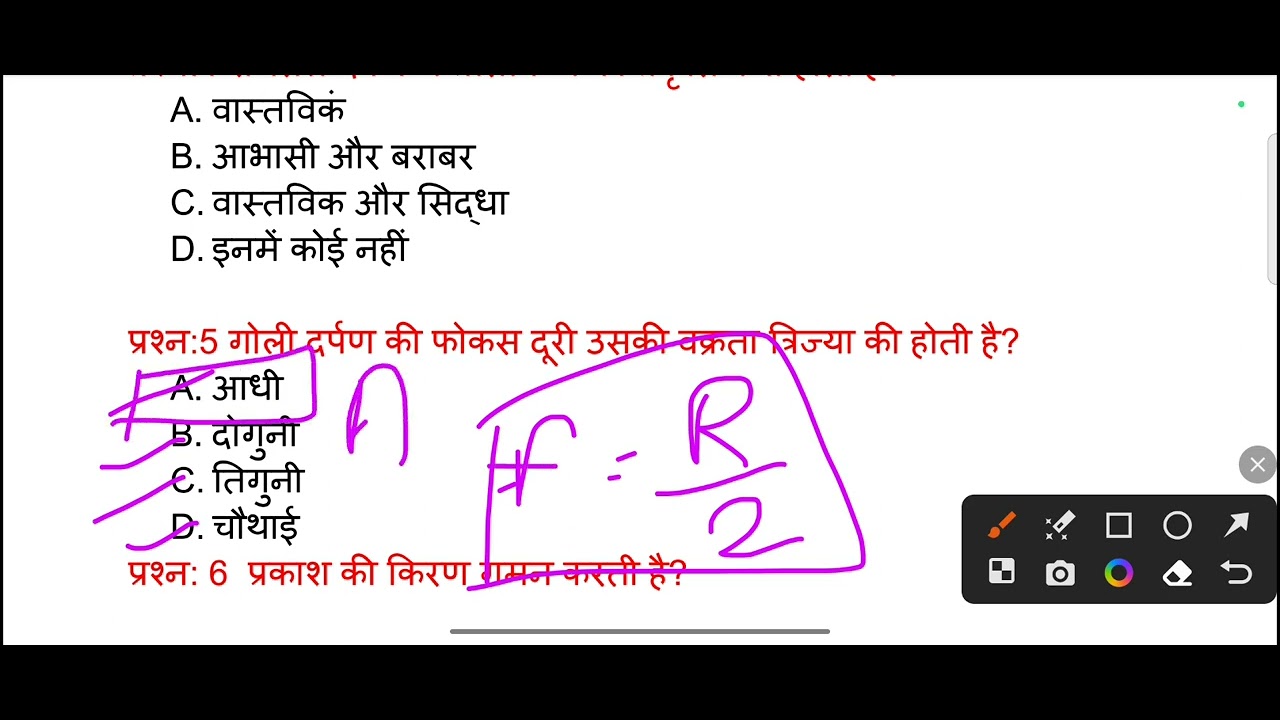 A. वास्तविकं
B. आभासी और बराबर
C. वास्तविक और सिद्धा
D. इनमें कोई नहीं
प्रश्न:5 गोली दर्पण की फोकस दूरी उसकी वक्रता त्रिज्या की होती है?
A. आधी
B. दोगुनी
C. तिगुनी
D. चौथाई
f = R/2
प्रश्न: 6 प्रकाश की किरण गमन करती है?